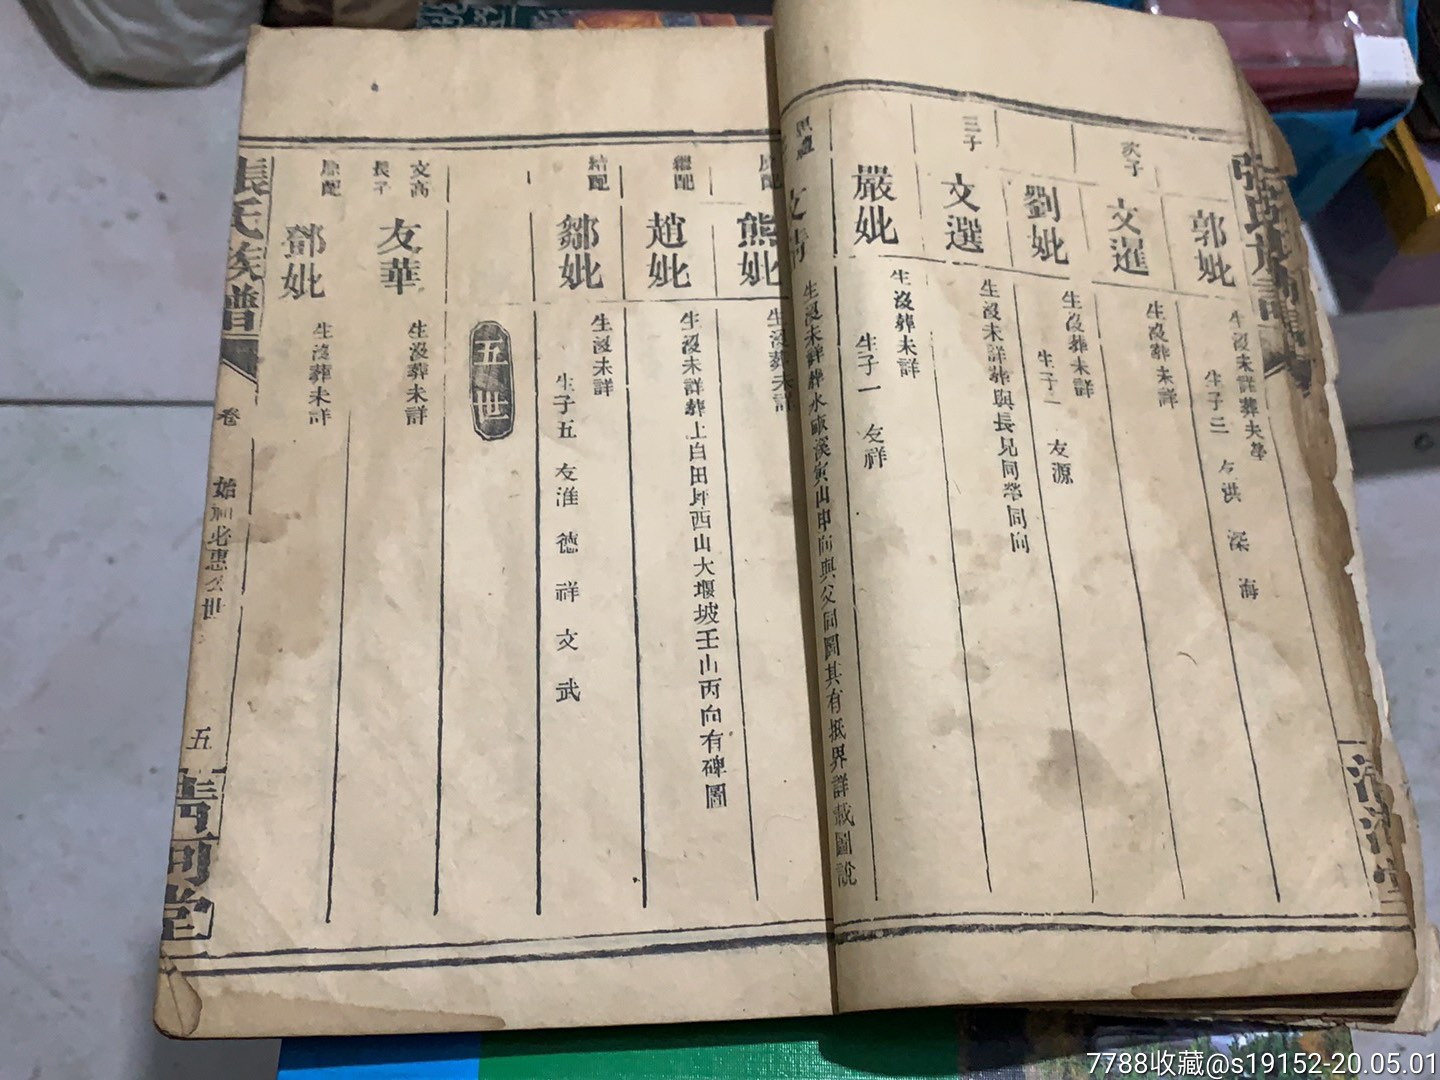 郭妣
生沒未詳葬夫塋
生子三 友洪 深 海
次子
文暹
生沒葬未詳
劉妣
生沒葬未詳
生子一 友源
三子
文選
生沒未詳葬與長兄同塋同向
嚴妣
生沒葬未詳
生子一 友祥
文清
生沒未詳葬水
溪寅山申向與父同圖其有抵界詳載圖說
熊妣
生沒葬未詳
繼配
趙妣
生沒未詳葬上白田坪西山大堰坡壬山丙向有碑圖
結配
鄒妣
生沒未詳
生子五 友淮 德 祥 文 武
五世
文高
長子
友華
生沒葬未詳
原配
鄧妣
生沒葬未詳
張氏族譜
卷
始祖必惠公世
五
清河堂
7788收藏@s19152-20.05.01